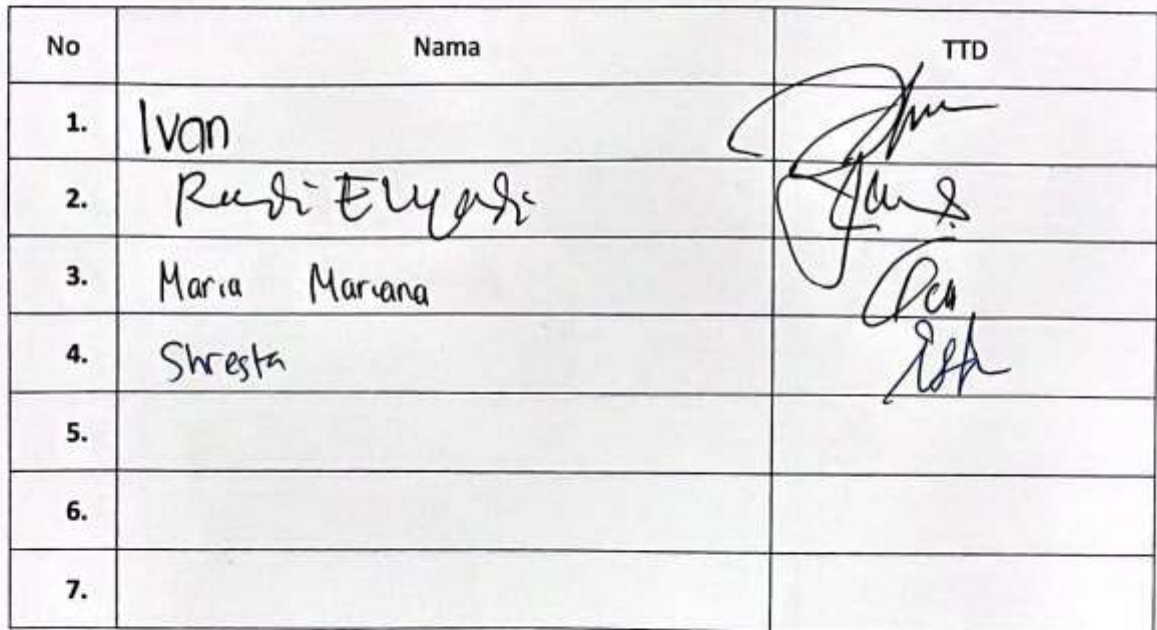 No Nama TTD
1. Ivan
2. Rudi
3. Maria Mariana
4. Shresta
5.
6.
7.